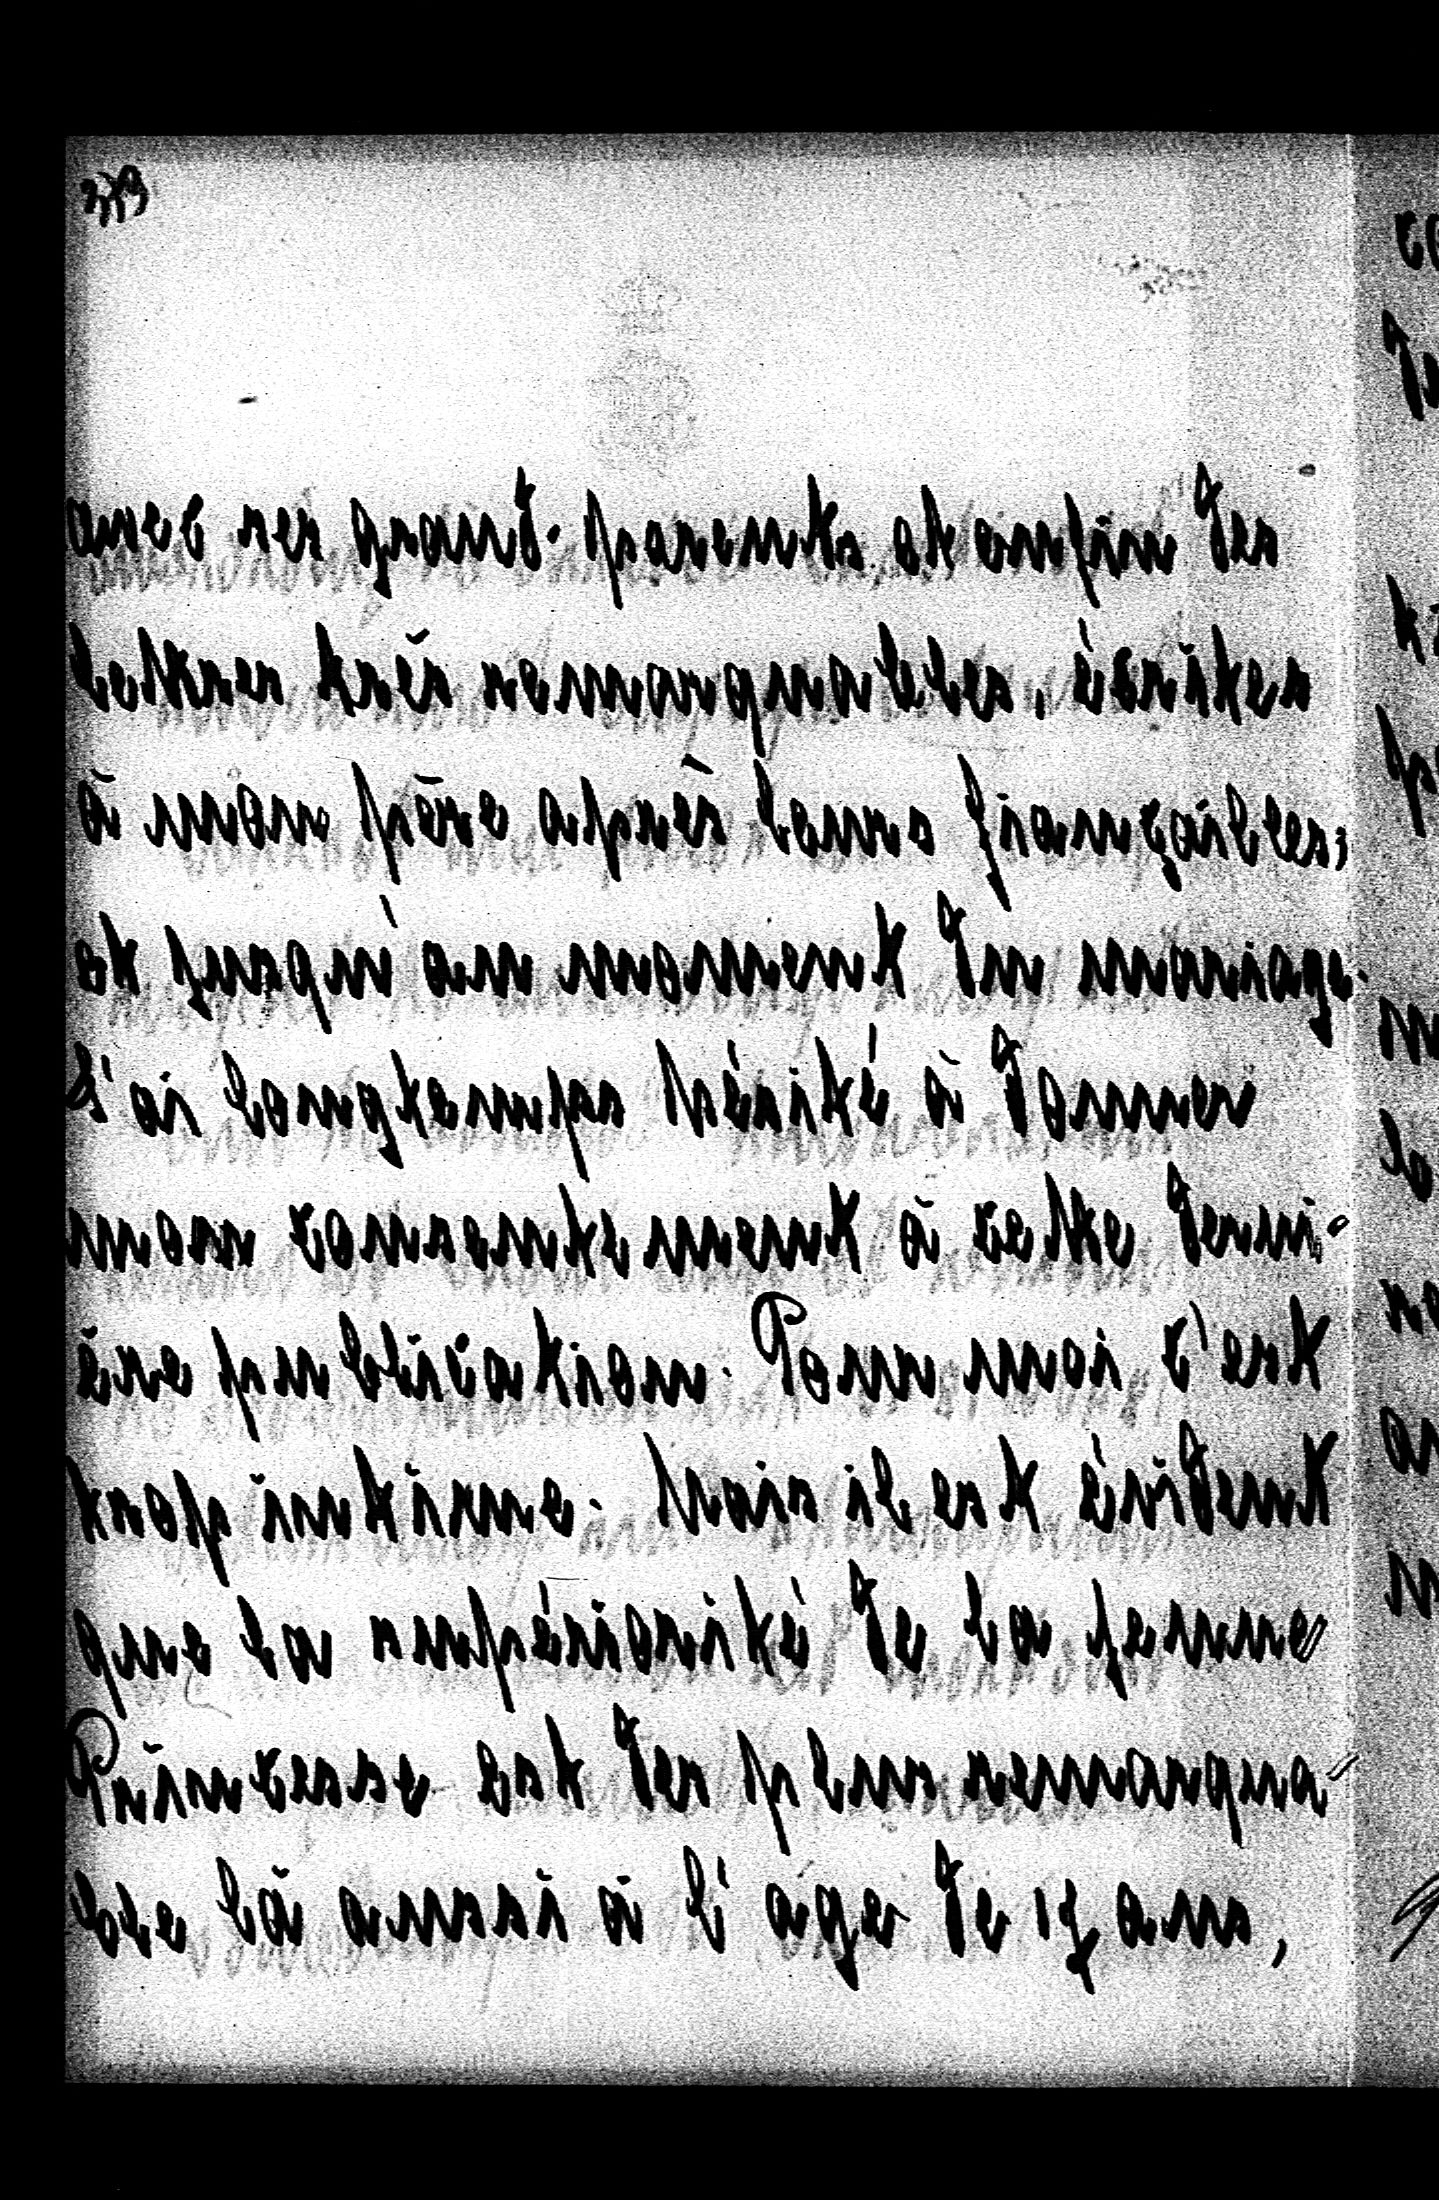 379
avec ses grand-parents et enfin des
lettres très remarquables, écrites
à mon père après leurs fiançailles;
et jusqu'au moment du mariage.
J'ai longtemps hésité à donner
mon consentement à cette derni-
ère publication. Pour moi c'est
trop intime. Mais il est évident
que la supériorité de la jeune
Princesse est des plus remarqua-
ble là aussi à l'âge de 17 ans,